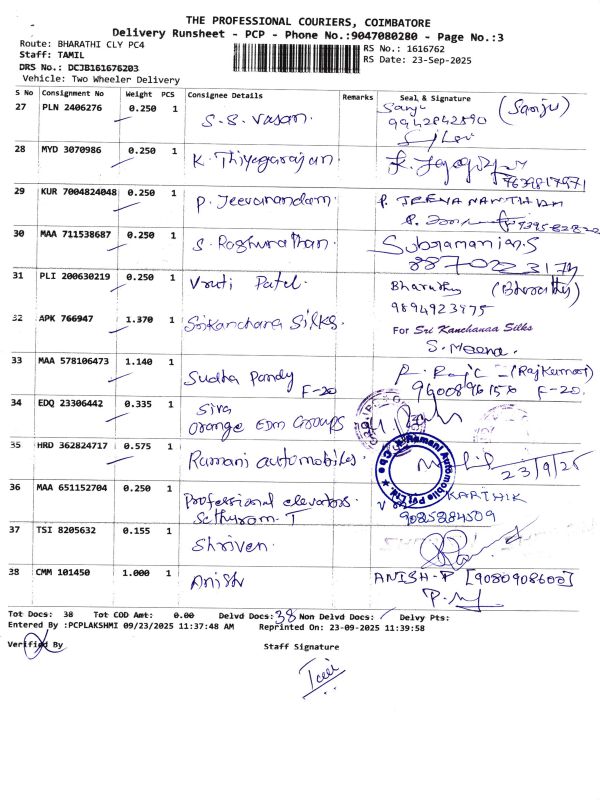 THE PROFESSIONAL COURIERS, COIMBATORE
Delivery Runsheet - PCP - Phone No.:9047080280 - Page No.:3
Route: BHARATHI CLY PC4
RS No.: 1616762
Staff: TAMIL
RS Date: 23-Sep-2025
DRS No.: DCJB161676203
Vehicle: Two Wheeler Delivery
S No Consignment No Weight PCS Consignee Details Remarks Seal & Signature
27 PLN 2406276 0.250 1 S.S. Vasan. Sanju (Sanju)
9942842590
28 MYD 3070986 0.250 1 K. Thiyagarajan.
9639817971
29 KUR 7004824048 0.250 1 P. Jeevanandam. P. JEEVANANTHAM
30 MAA 711538687 0.250 1 S. Raghunathan. Subramanian.S
31 PLI 200630219 0.250 1 Vruti Patel. Bharathy (Bharathy)
9894923975
32 APK 766947 1.370 1 Srikanchana Silks. For Sri Kanchanaa Silks
S. Meena.
33 MAA 578106473 1.140 1 Sudha Pandy F-20 (RajKumar)
9600896156 F-20.
34 EDQ 23306442 0.335 1 Siva
Orange EDM Groups
35 HRD 362824717 0.575 1 Ramani automobiles. Ramani Automobile Pvt Ltd.
23/9/25
36 MAA 651152704 0.250 1 Professional elevators. KARTHIK
Sethuram. T 9085884509
37 TSI 8205632 0.155 1 Shriven.
38 CMM 101450 1.000 1 Anish ANISH-P [9080908600]
Tot Docs: 38 Tot COD Amt: 0.00 Delvd Docs: 38 Non Delvd Docs: Delvy Pts:
Entered By :PCPLAKSHMI 09/23/2025 11:37:48 AM Reprinted On: 23-09-2025 11:39:58
Verified By Staff Signature